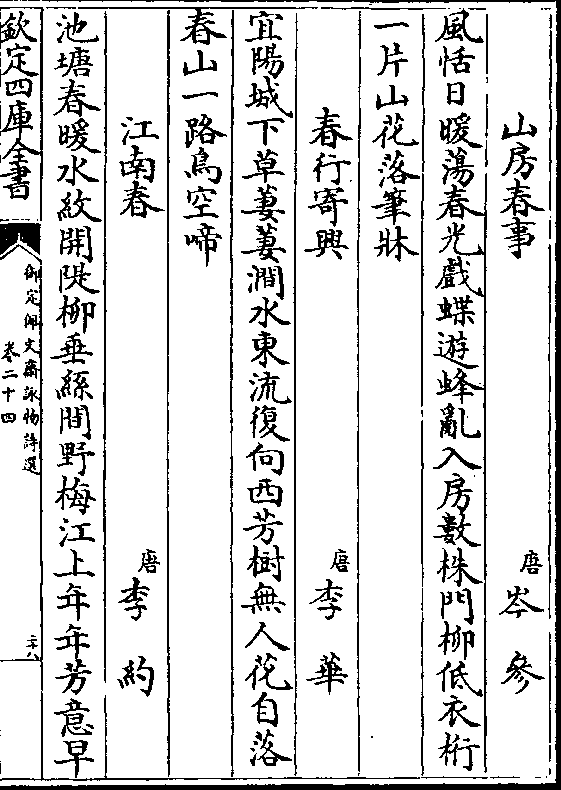 山房春事 唐 岑參
風恬日暖蕩春光戲蝶遊蜂亂入房數株門柳低衣桁
一片山花落筆牀
春行寄興 唐 李華
宜陽城下草萋萋澗水東流復向西芳樹無人花自落
春山一路鳥空啼
江南春 唐 李約
池塘春暖水紋開隄柳垂絲間野梅江上年年芳意早
欽定四庫全書
御定佩文齋詠物詩選
卷二十四
二十八